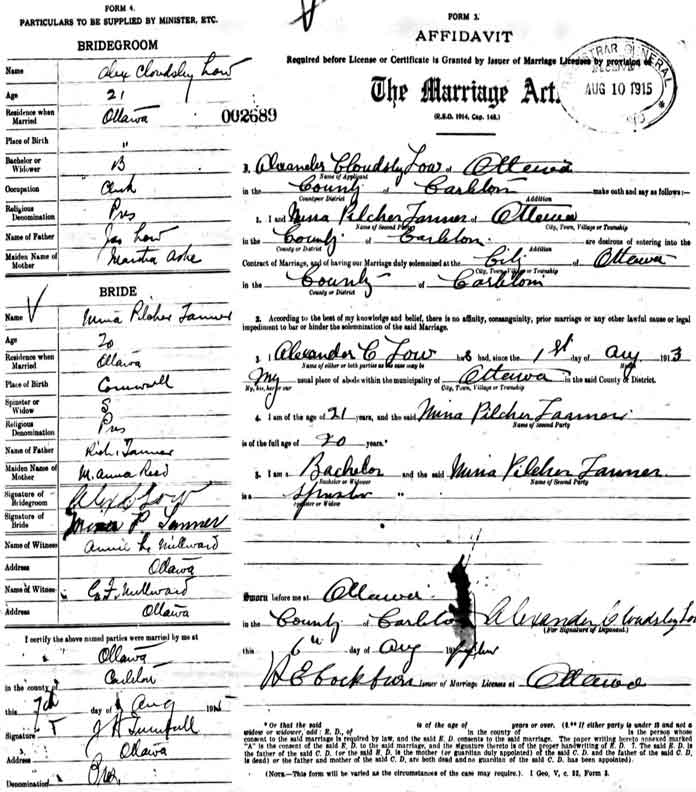 FORM 4.
PARTICULARS TO BE SUPPLIED BY MINISTER, ETC.
BRIDEGROOM
Name Alex Cloudsley Low
Age 21
Residence when Married Ottawa
Place of Birth "
Bachelor or Widower B
Occupation Clerk
Religious Denomination Pres
Name of Father Jas Low
Maiden Name of Mother Martha Ashe
BRIDE
Name Mina Pilcher Tanner
Age 20
Residence when Married Ottawa
Place of Birth Cornwall
Spinster or Widow S
Religious Denomination Pres
Name of Father Rich. Tanner
Maiden Name of Mother M. Anna Reed
Signature of Bridegroom Alex C Low
Signature of Bride Mina P. Tanner
Name of Witness Annie L. Millward
Address Ottawa
Name of Witness G. F. Millward
Address Ottawa
I certify the above named parties were married by me at
Ottawa
in the county of Carleton
this 7th day of Aug 1915
Signature J H Turnbull
Address Ottawa
Denomination Pres.
002689
FORM 3.
AFFIDAVIT
Required before License or Certificate is Granted by Issuer of Marriage Licenses by provision of
The Marriage Act.
(R.S.O. 1914, Cap. 148.)
REGISTRAR GENERAL
RECEIVED
AUG 10 1915
I, Alexander Cloudsly Low of Ottawa
Name of Applicant
in the County of Carleton make oath and say as follows:-
County or District Addition
1. I and Mina Pilcher Tanner of Ottawa
Name of Second Party City, Town, Village or Township
in the County of Carleton are desirous of entering into the
County or District Addition
Contract of Marriage, and of having our Marriage duly solemnized at the City of Ottawa
City, Town, Village or Township
in the County of Carleton
County or District
2. According to the best of my knowledge and belief, there is no affinity, consanguinity, prior marriage or any other lawful cause or legal
impediment to bar or hinder the solemnization of the said Marriage.
3. I Alexander C Low has had, since the 1st day of Aug 1913
Name of either or both parties as the case may be
My usual place of abode within the municipality of Ottawa in the said County or District.
My, his, her or our City, Town, Village or Township
4. I am of the age of 21 years, and the said Mina Pilcher Tanner
Name of Second Party
is of the full age of 20 years.*
5. I am a Bachelor and the said Mina Pilcher Tanner
Bachelor or Widower Name of Second Party
is a Spinster "
Spinster or Widow
Sworn before me at Ottawa
in the County of Carleton Alexander Cloudsley Low
(For Signature of Deponent.)
this 6th day of Aug
H E Cockburn Issuer of Marriage Licenses at Ottawa
* Or that the said is of the age of years or over. (5.** If either party is under 18 and not a
widow or widower, add: E. D., of in the county of is the person whose
consent to the said marriage is required by law, and the said E. D. consents to the said marriage. The paper writing hereto annexed marked
"A" is the consent of the said E. D. to the said marriage, and the signature thereto is of the proper handwriting of E. D. 7. The said E. D. is
the father of the said C. D. (or the said E. D. is the mother (or guardian duly appointed) of the said C. D. and the father of the said C. D.
is dead) or the father and mother of the said C. D. are both dead and no guardian of the said C. D. has been appointed).
(NOTE—This form will be varied as the circumstances of the case may require.) 1 Geo. V, c. 32, Form 3.